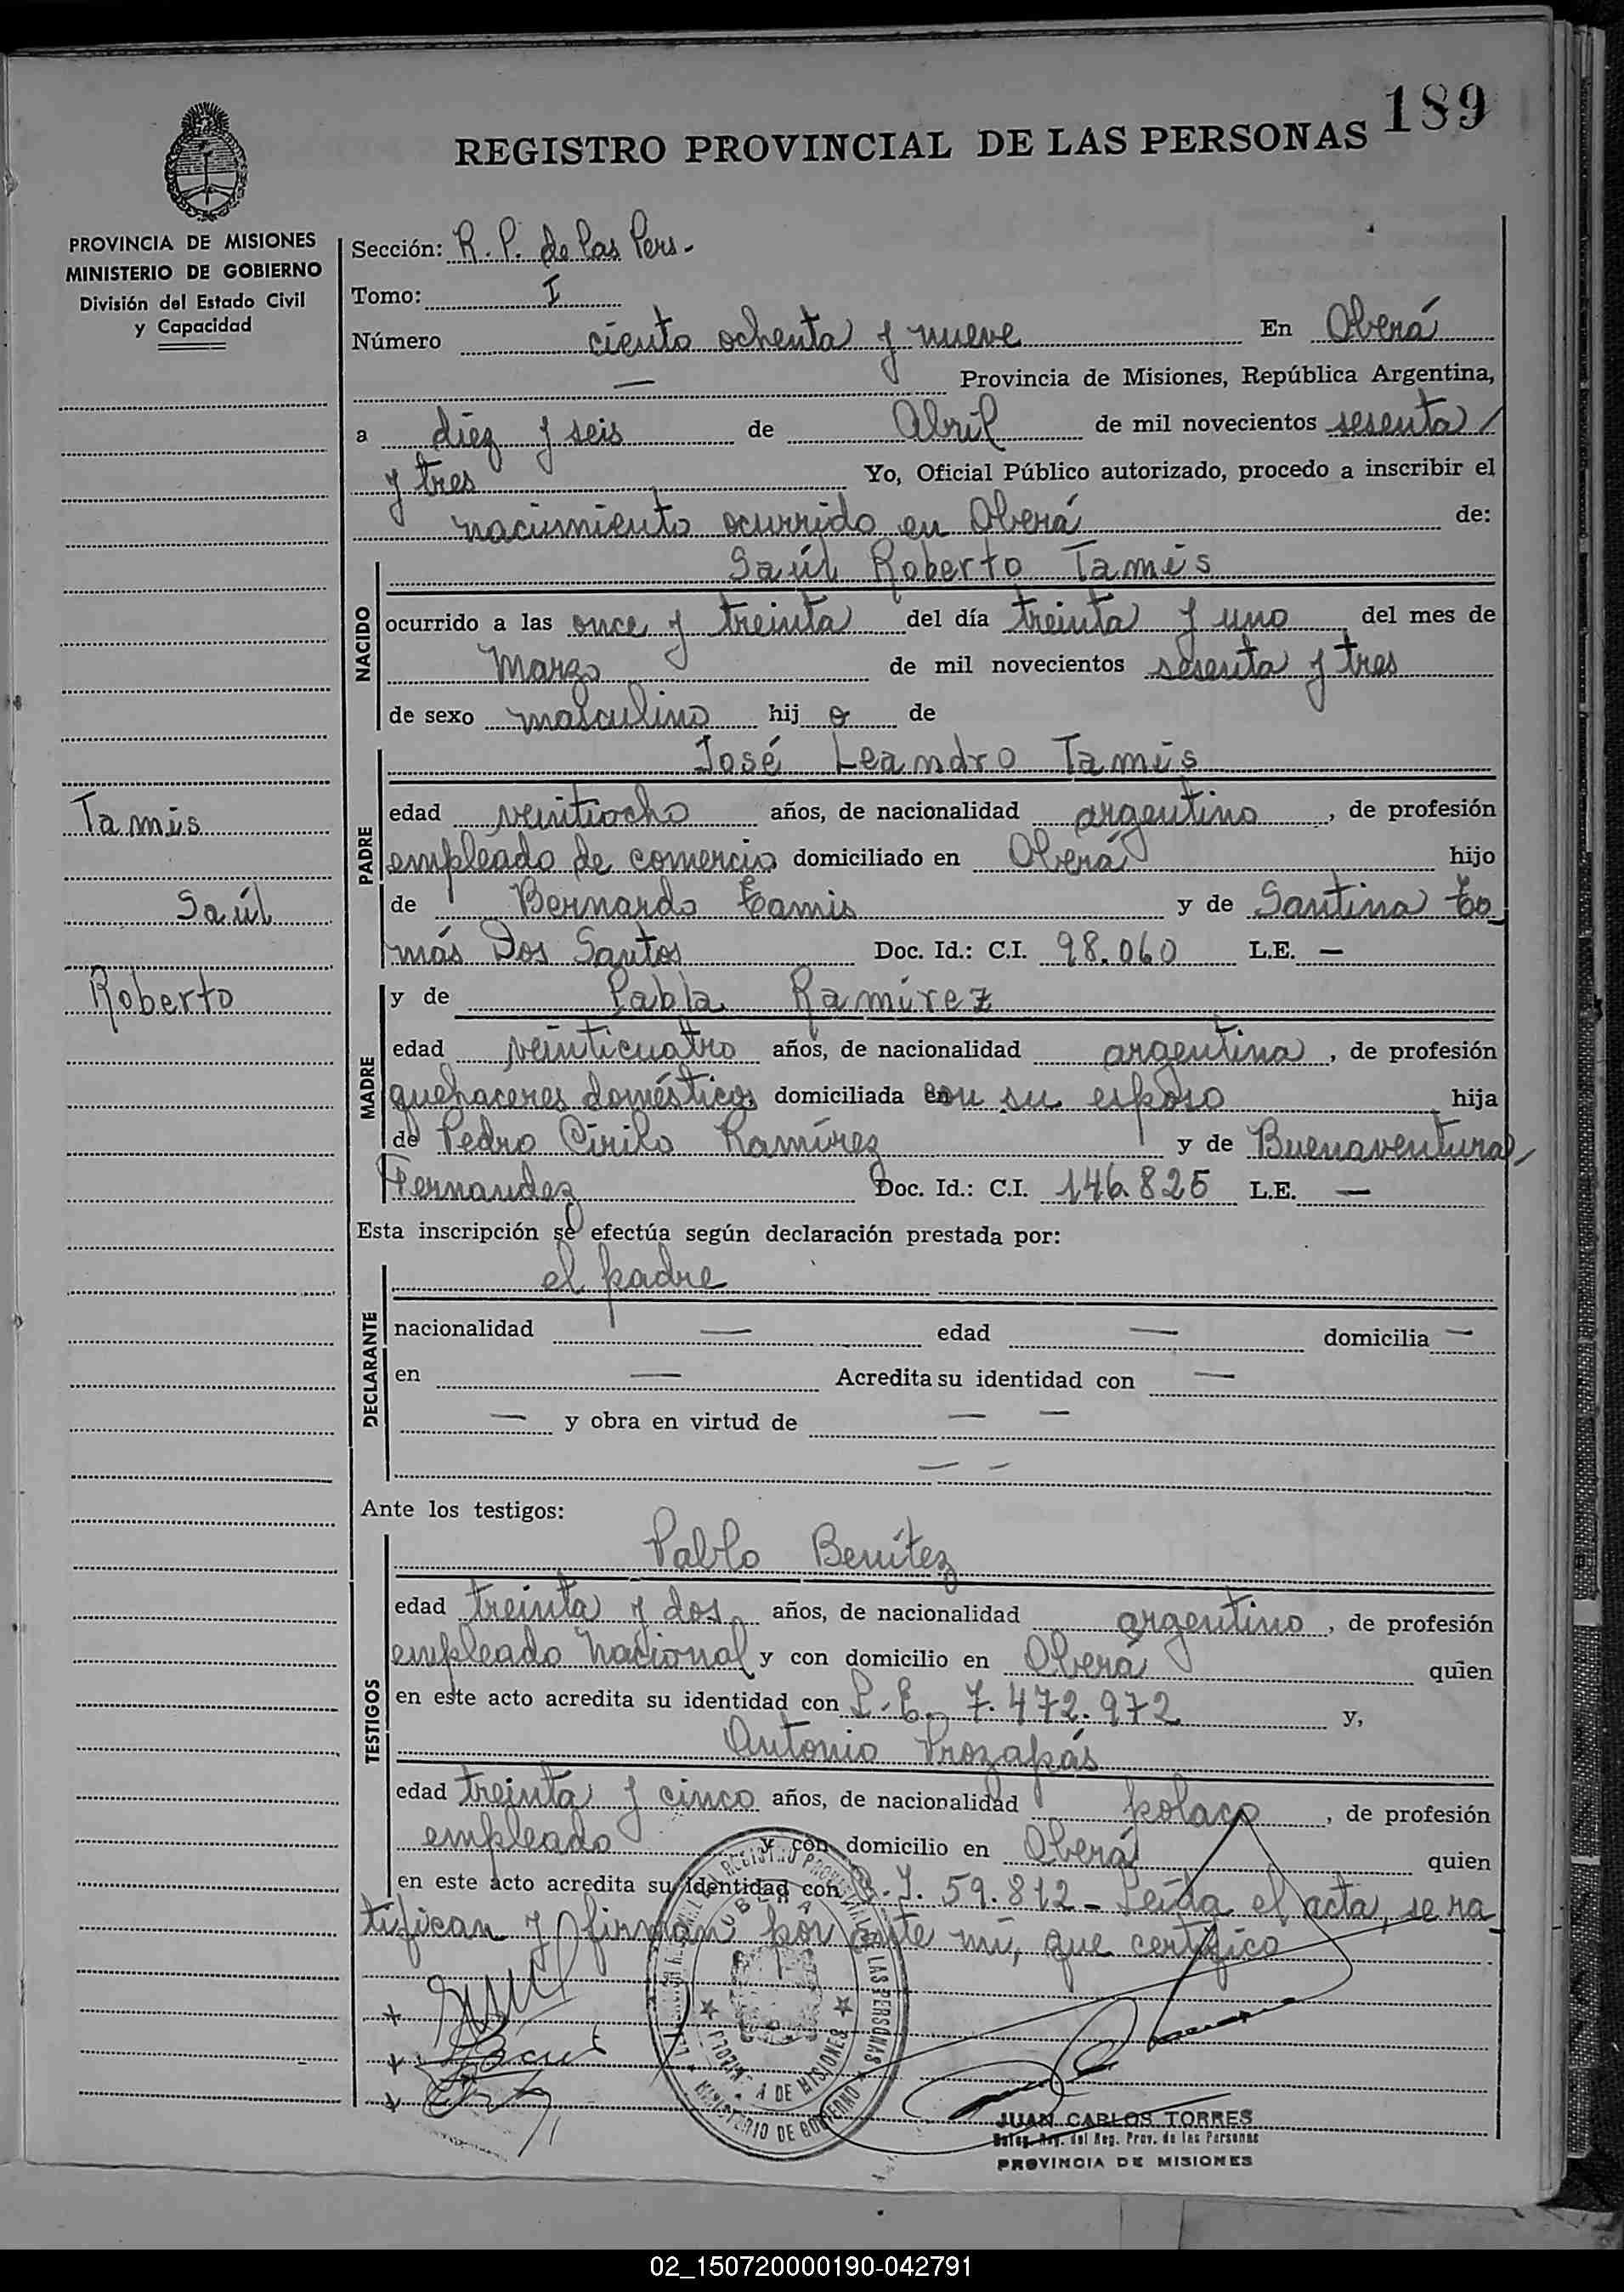 189
REGISTRO PROVINCIAL DE LAS PERSONAS
PROVINCIA DE MISIONES
MINISTERIO DE GOBIERNO
División del Estado Civil
y Capacidad
Sección: R. P. de las Pers.-
Tomo: I
Número ciento ochenta y nueve En Oberá
— Provincia de Misiones, República Argentina,
a diez y seis de Abril de mil novecientos sesenta
y tres Yo, Oficial Público autorizado, procedo a inscribir el
nacimiento ocurrido en Oberá de:
NACIDO
Saúl Roberto Tamis
ocurrido a las once y treinta del día treinta y uno del mes de
Marzo de mil novecientos sesenta y tres
de sexo masculino hij o de
PADRE
José Leandro Tamis
edad veintiocho años, de nacionalidad argentino, de profesión
empleado de comercio domiciliado en Oberá hijo
de Bernardo Tamis y de Santina To-
más Dos Santos Doc. Id.: C.I. 98.060 L.E. —
Tamis
Saúl
Roberto
MADRE
y de Pabla Ramírez
edad veinticuatro años, de nacionalidad argentina, de profesión
quehaceres domésticos domiciliada con su esposo hija
de Pedro Cirilo Ramírez y de Buenaventura
Fernandez Doc. Id.: C.I. 146.825 L.E. —
Esta inscripción se efectúa según declaración prestada por:
DECLARANTE
el padre
nacionalidad — edad — domicilia —
en — Acredita su identidad con —
— y obra en virtud de — —
— —
Ante los testigos:
TESTIGOS
Pablo Benítez
edad treinta y dos años, de nacionalidad argentino, de profesión
empleado Nacional y con domicilio en Oberá quien
en este acto acredita su identidad con L.E. 7.472.972 y,
Antonio Prozapás
edad treinta y cinco años, de nacionalidad polaco, de profesión
empleado y con domicilio en Oberá quien
en este acto acredita su identidad con C.I. 59.812 - Leída el acta, se ra-
tifican y firman por ante mí, que certifico
OBERA
PROVINCIA DE MISIONES
MINISTERIO DE GOBIERNO
JUAN CARLOS TORRES
del Reg. Prov. de las Personas
PROVINCIA DE MISIONES
02_150720000190-042791